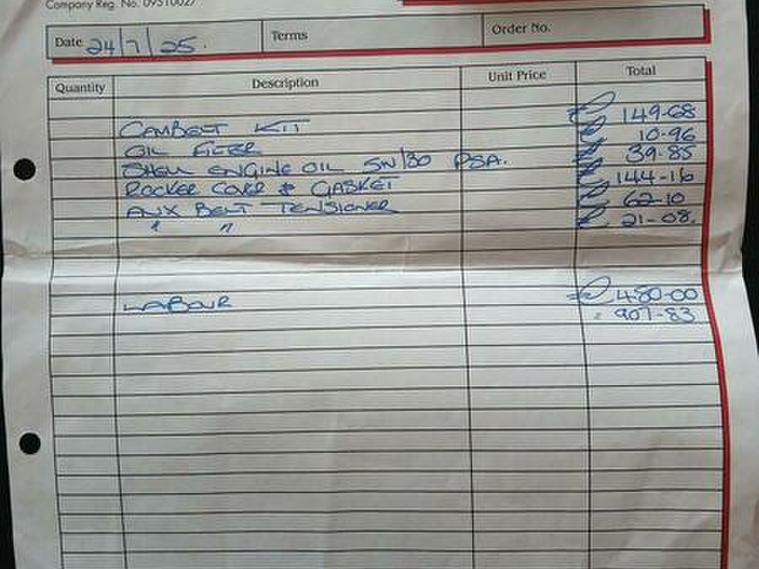 Company Reg. No. 09510027
Date 24/7/25. Terms Order No.
Quantity Description Unit Price Total
CAMBELT KIT £ 149-68
OIL FILTER £ 10-96
SHELL ENGINE OIL 5W/30 PSA. £ 39-85
ROCKER COVER & GASKET £ 144-16
AUX BELT TENSIONER £ 62-10
" " £ 21-08.
LABOUR £ 480-00
907-83